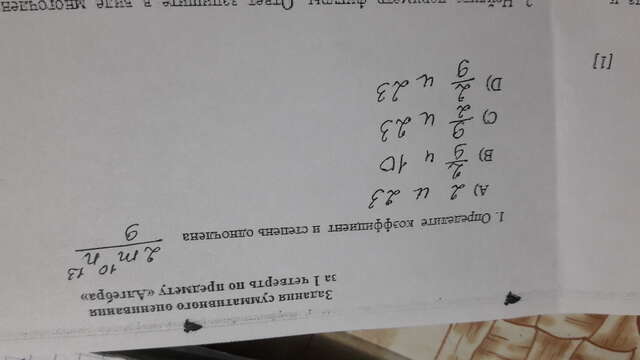 Задания суммативного оценивания
за 1 четверть по предмету «Алгебра»
1. Определите коэффициент и степень одночлена 2m¹⁰n¹³/9
A) 2 и 23
B) 2/9 и 10
C) 9/2 и 23
D) 2/9 и 23
[1]
2. Найдите периметр фигуры. Ответ запишите в виде многочлен